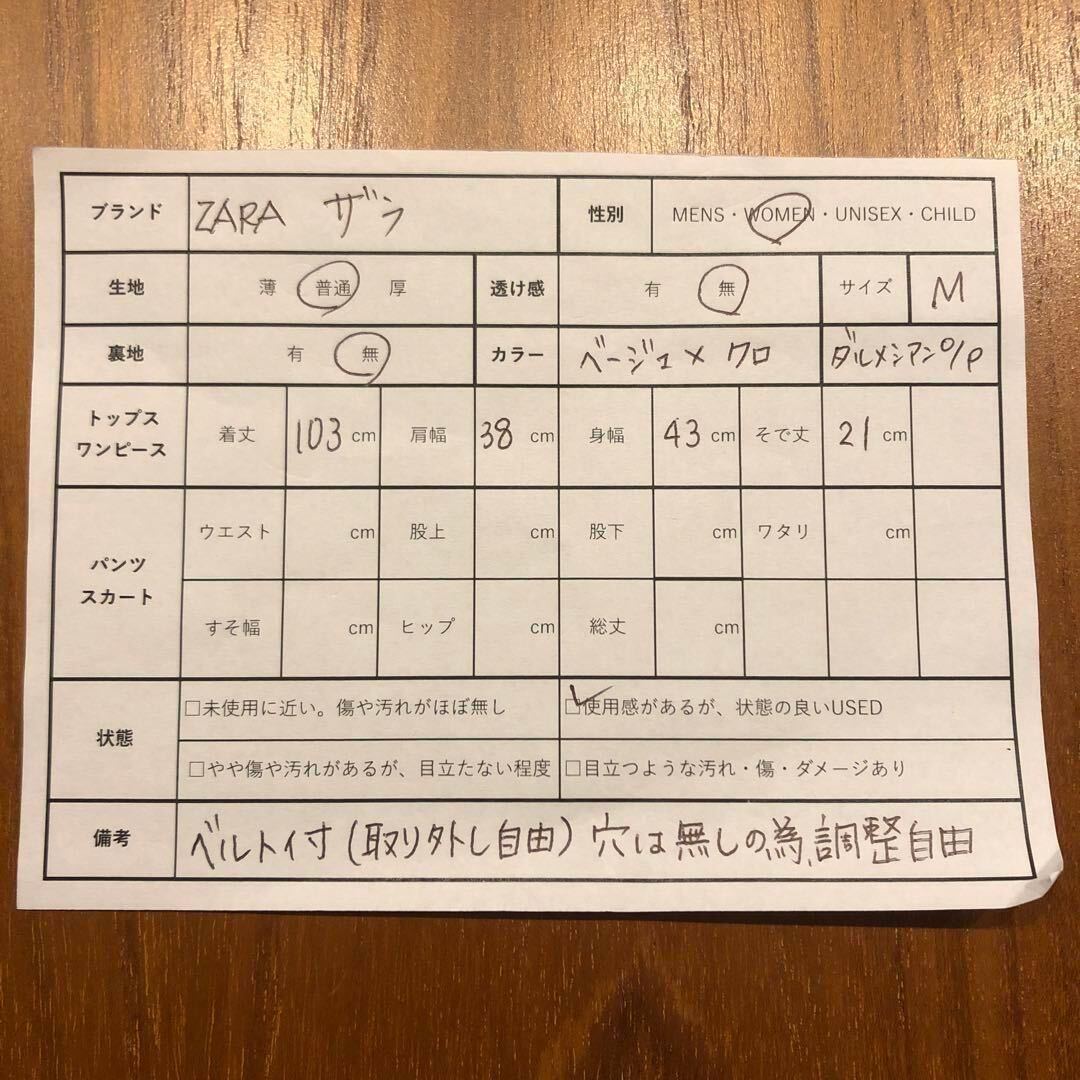 ブランド ZARA ザラ 性別 MENS・WOMEN・UNISEX・CHILD
生地 薄 普通 厚 透け感 有 無 サイズ M
裏地 有 無 カラー ベージュ×クロ ダルメシアンO/P
トップス
ワンピース
着丈 103 cm 肩幅 38 cm 身幅 43 cm そで丈 21 cm
パンツ
スカート
ウエスト cm 股上 cm 股下 cm ワタリ cm
すそ幅 cm ヒップ cm 総丈 cm
状態
□未使用に近い。傷や汚れがほぼ無し □使用感があるが、状態の良いUSED
□やや傷や汚れがあるが、目立たない程度 □目立つような汚れ・傷・ダメージあり
備考 ベルト付(取り外し自由)穴は無しの為、調整自由